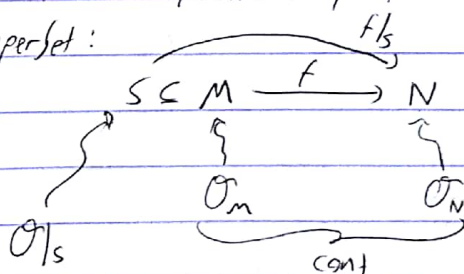 perset:
f|s
S ⊆ M f N
O_M O_N
O|s
cont